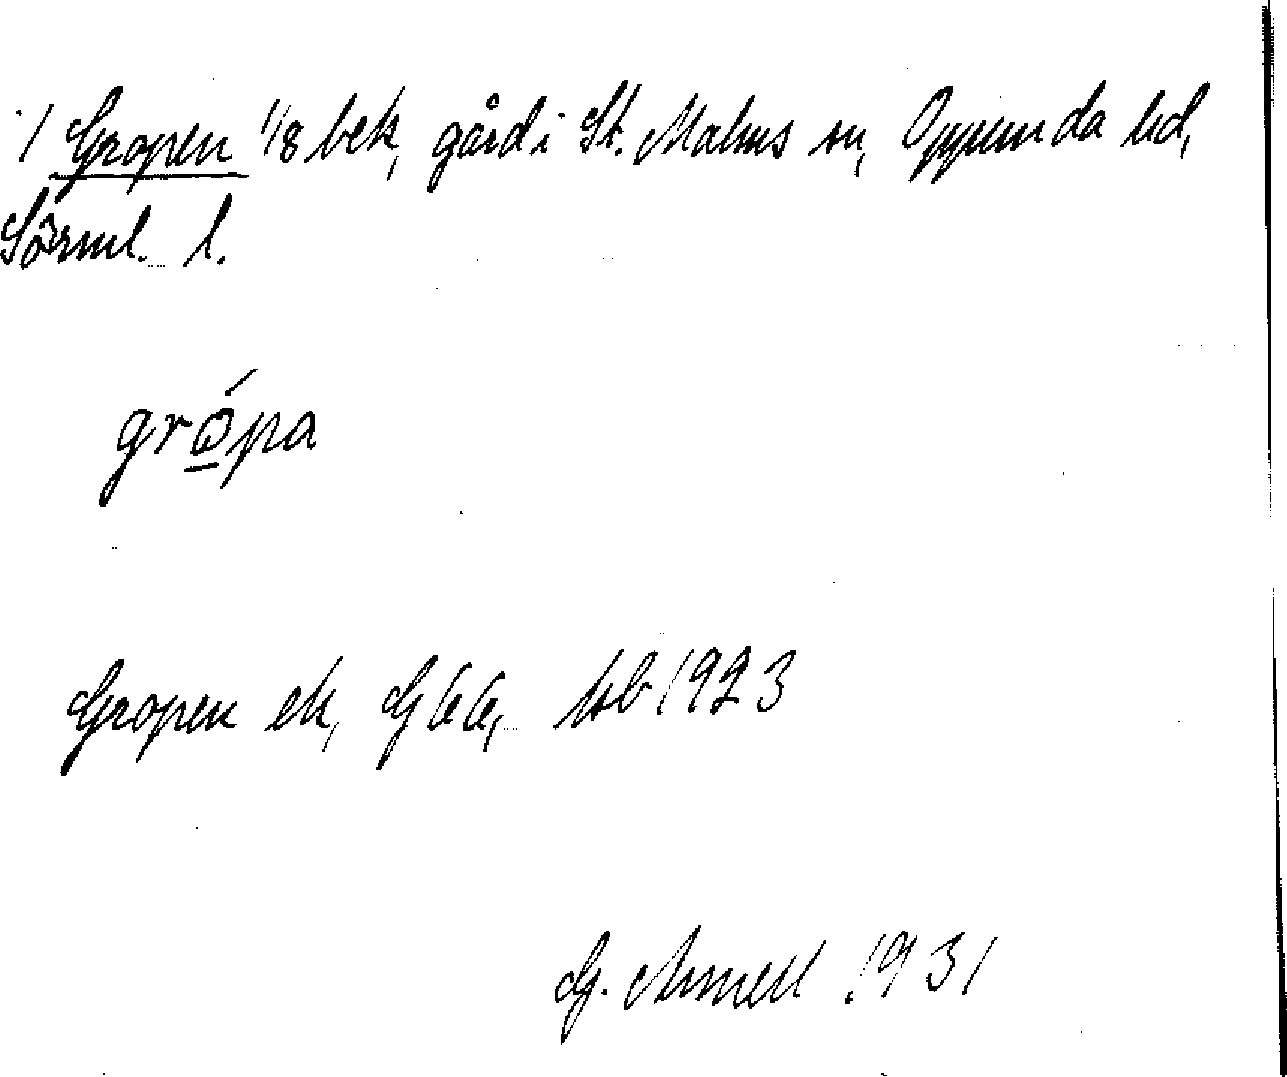 1) Gropen 1/8 bek, gård i St. Malms sn, Oppunda hd,
Sörml. l.
grópa
Gropen ek, GEK, 1923
G. Armell 1931